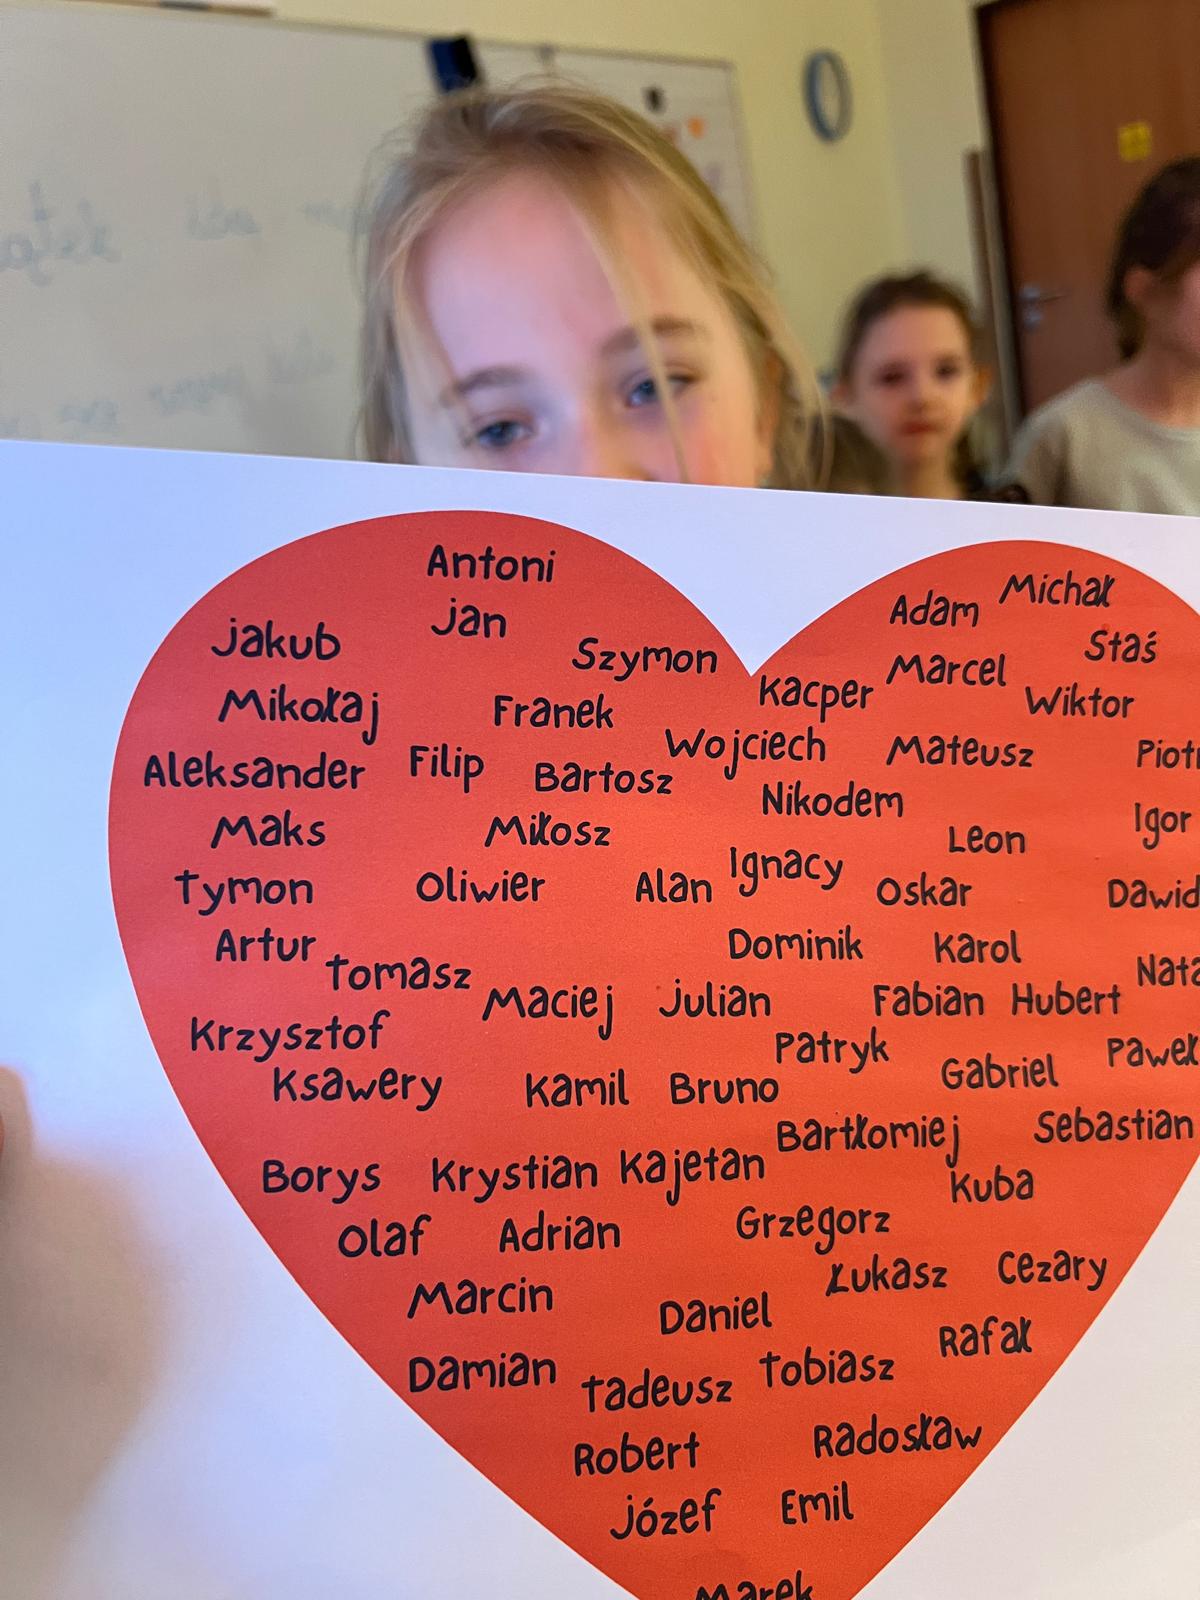 Antoni
Jan
Jakub
Szymon
Adam
Michał
Staś
Mikołaj
Franek
Kacper
Marcel
Wiktor
Aleksander
Filip
Bartosz
Wojciech
Mateusz
Maks
Miłosz
Nikodem
Leon
Igor
Tymon
Oliwier
Alan
Ignacy
Oskar
Dawid
Artur
Tomasz
Dominik
Karol
Krzysztof
Maciej
Julian
Fabian
Hubert
Ksawery
Kamil
Bruno
Patryk
Gabriel
Paweł
Borys
Krystian
Kajetan
Bartłomiej
Sebastian
Kuba
Olaf
Adrian
Grzegorz
Marcin
Daniel
Łukasz
Cezary
Damian
Tadeusz
Tobiasz
Rafał
Robert
Radosław
Józef
Emil
Marek